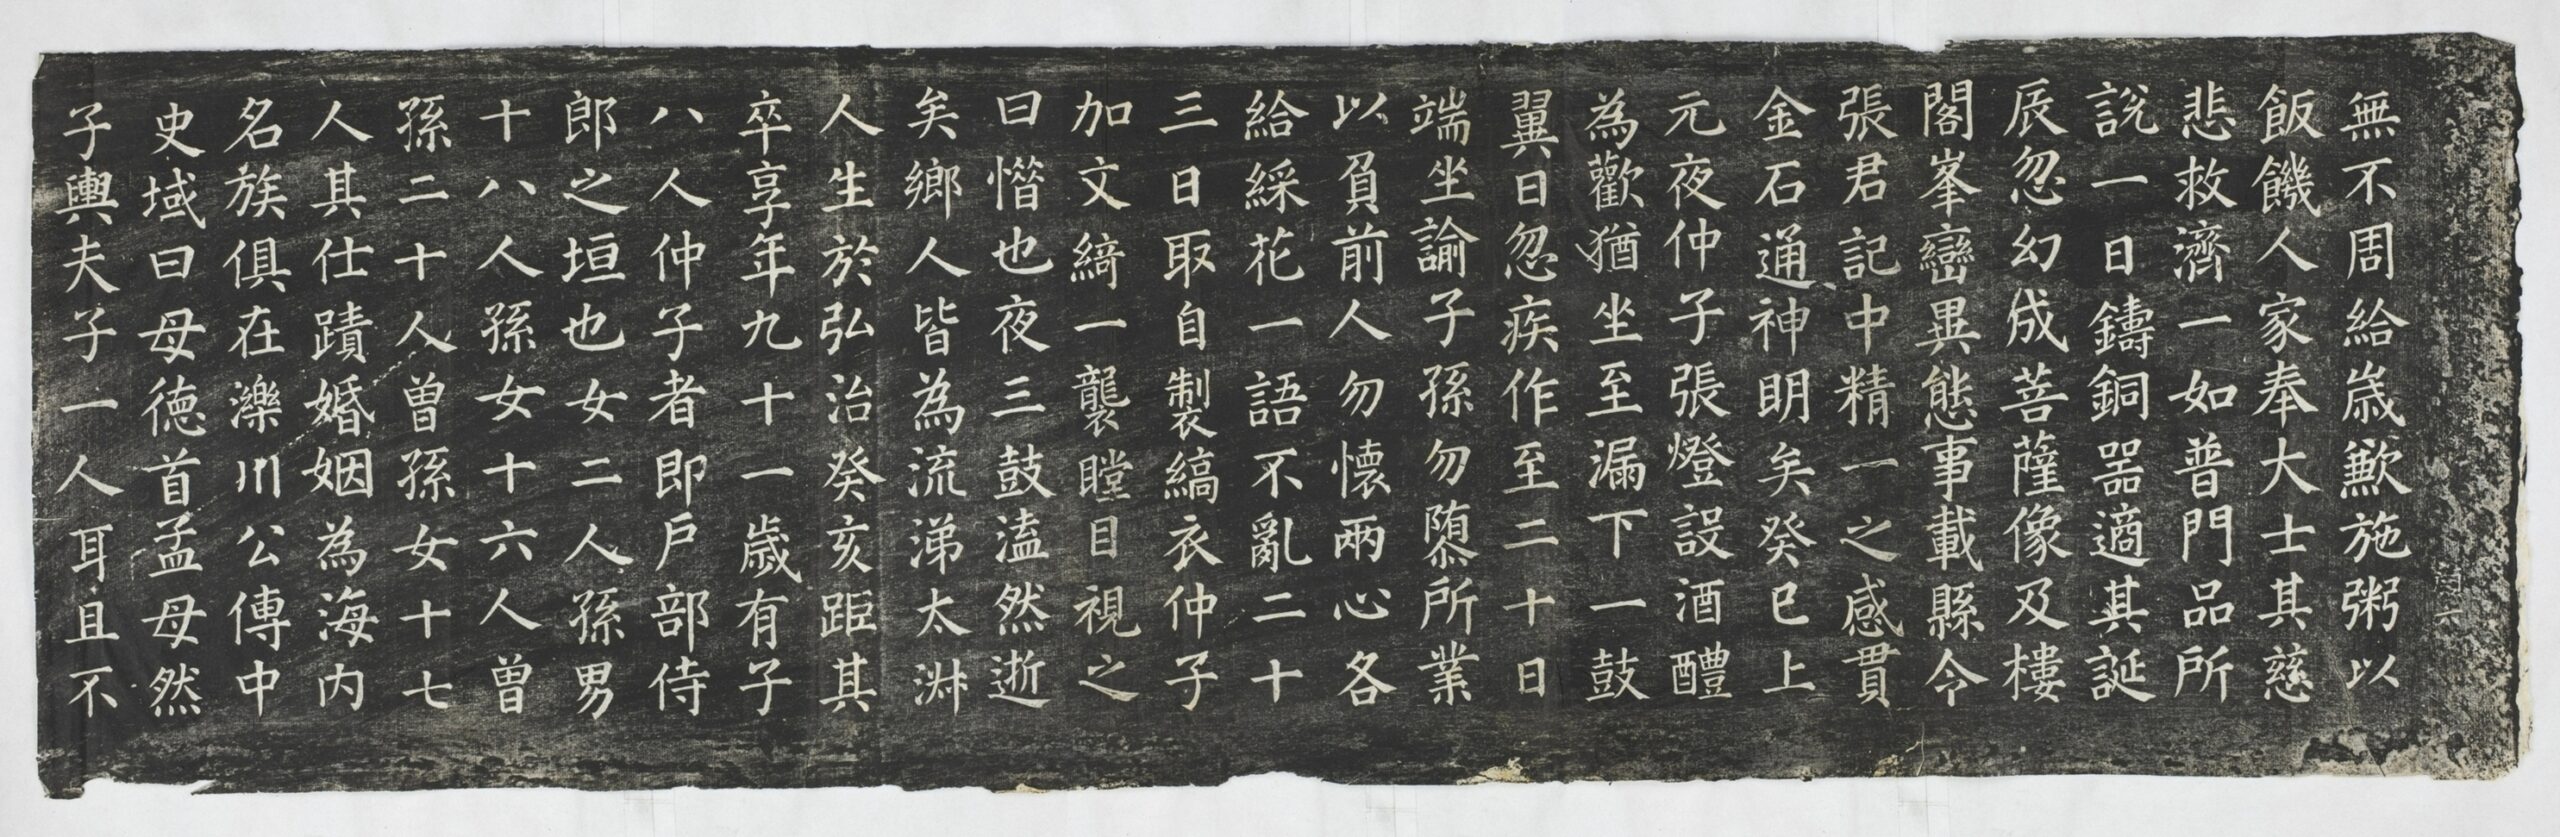 無不周給歲歉施粥以
飯饑人家奉大士其慈
悲救濟一如普門品所
說一日鑄銅器適其誕
辰忽幻成菩薩像及樓
閣峯巒異態事載縣令
張君記中精一之感貫
金石通神明矣癸巳上
元夜仲子張燈設酒醴
為歡猶坐至漏下一鼓
翼日忽疾作至二十日
端坐諭子孫勿隳所業
以負前人勿懷兩心各
給綵花一語不亂二十
三日取自製縞衣仲子
加文綺一襲瞠目視之
曰憯也夜三鼓溘然逝
矣鄉人皆為流涕太淑
人生於弘治癸亥距其
卒享年九十一歲有子
八人仲子者即戶部侍
郎之垣也女二人孫男
十八人孫女十六人曾
孫二十人曾孫女十七
人其仕蹟婚姻為海内
名族俱在濼川公傳中
史域曰母德首孟母然
子輿夫子一人耳且不